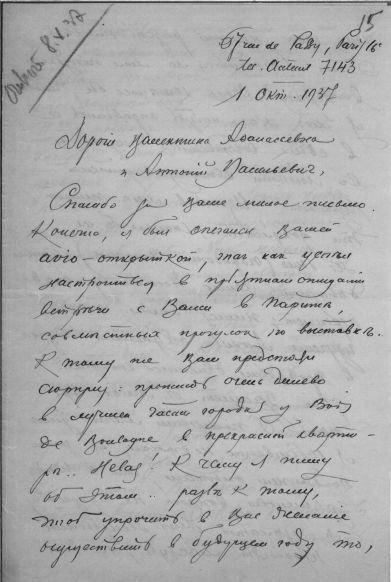 15
67 rue de Passy, Paris 16e
1 Окт. 1937
Дорогие Валентина Афанасьевна
и Антоній Васильевич,
Спасибо за Ваше милое письмо.
Конечно, я был опечален Вашей
avio-открыткой, так как успел
настроиться в пріятном ожиданіи
встрѣчи с Вами в Париже,
совмѣстных прогулок по выставкѣ.
К тому же Вам предстоял
сюрприз: прожить очень дешево
в лучшей части города у Bois
de Boulogne в прекрасной кварти-
рѣ.. Helas! К чему я пишу
об этом.. развѣ к тому,
чтоб упрочить в Вас желаніе
осуществить в будущем году то,